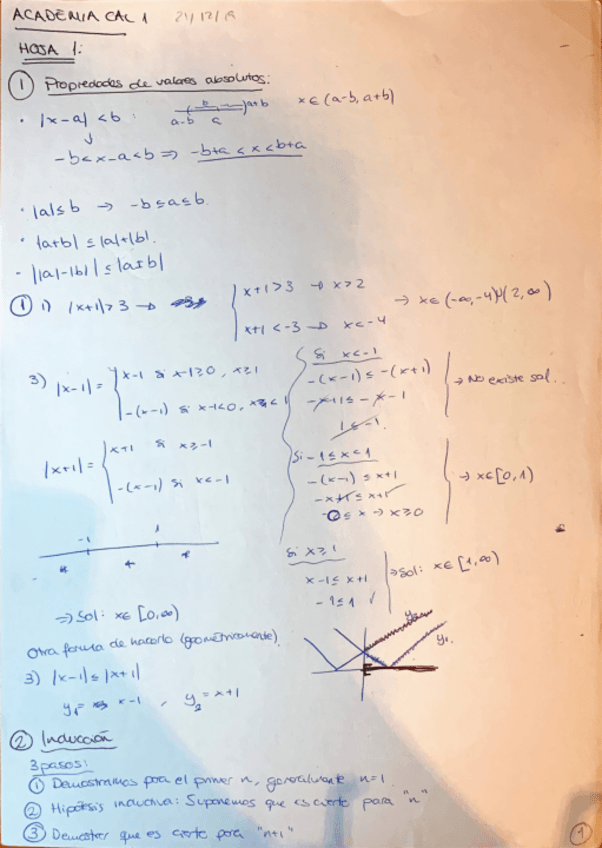 ACADEMIA CAL 1 21/12/19
HOJA 1:
① Propiedades de valores absolutos:
· |x-a| < b : a-b a b a+b x ∈ (a-b, a+b)
↓
-b < x-a < b ⇒ -b+a < x < b+a
· |a| ≤ b → -b ≤ a ≤ b
· |a+b| ≤ |a|+|b|.
- ||a|-|b|| ≤ |a±b|
① 1) |x+1| > 3 → { x+1 > 3 → x > 2
x+1 < -3 → x < -4
→ x ∈ (-∞, -4) ∪ (2, ∞)
3) |x-1| = { x-1 si x-1 ≥ 0, x ≥ 1
-(x-1) si x-1 < 0, x < 1
|x+1| = { x+1 si x ≥ -1
-(x-1) si x < -1
-1 1
Si x < -1
-(x-1) ≤ -(x+1)
-x+1 ≤ -x-1
1 ≤ -1.
→ No existe sol..
Si -1 ≤ x < 1
-(x-1) ≤ x+1
-x+1 ≤ x+1
0 ≤ x → x ≥ 0
→ x ∈ [0, 1)
Si x ≥ 1
x-1 ≤ x+1
-1 ≤ 1 ✓
→ Sol: x ∈ [1, ∞)
⇒ Sol: x ∈ [0, ∞)
Otra forma de hacerlo (geométricamente).
3) |x-1| ≤ |x+1|
y₁ = x-1 , y₂ = x+1
y₂
y₁.
② Inducción
3 pasos:
① Demostramos para el primer n, generalmente n=1
② Hipótesis inductiva: Suponemos que es cierto para "n"
③ Demostrar que es cierto para "n+1"
1